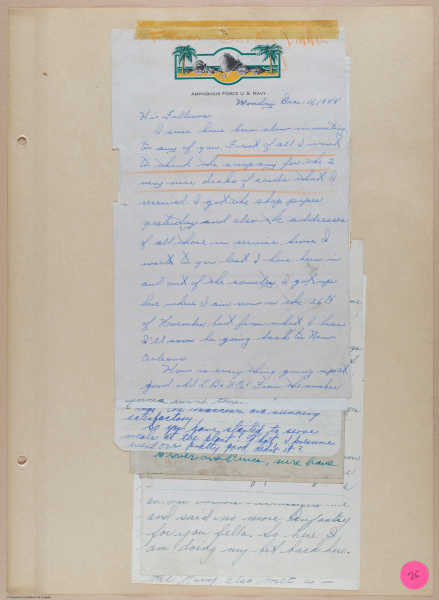 AMPHIBIOUS FORCE U.S. NAVY
Monday Dec. 11, 1944
Hi-s Fellows
I sure have been slow in writing
to any of you. First of all I want
to thank the company for the 2
very nice decks of cards that I
received. I got the shop paper
yesterday and also the addresses
of all those in service. Since I
wrote to you last I have been in
and out of the country. I got up
here where I am now on the 26th
of November, but from what I hear
I'll soon be going back to New
Orleans.
How is everything going up at
good old
around there.
machine are running
satisfactory.
So you have started to serve
meals at the plant! That, I presume
went over pretty good, didn't it?
over and since, sure have
and said no more Infantry
for you fella so here I
am doing my bit back here.
The Navy also met
26